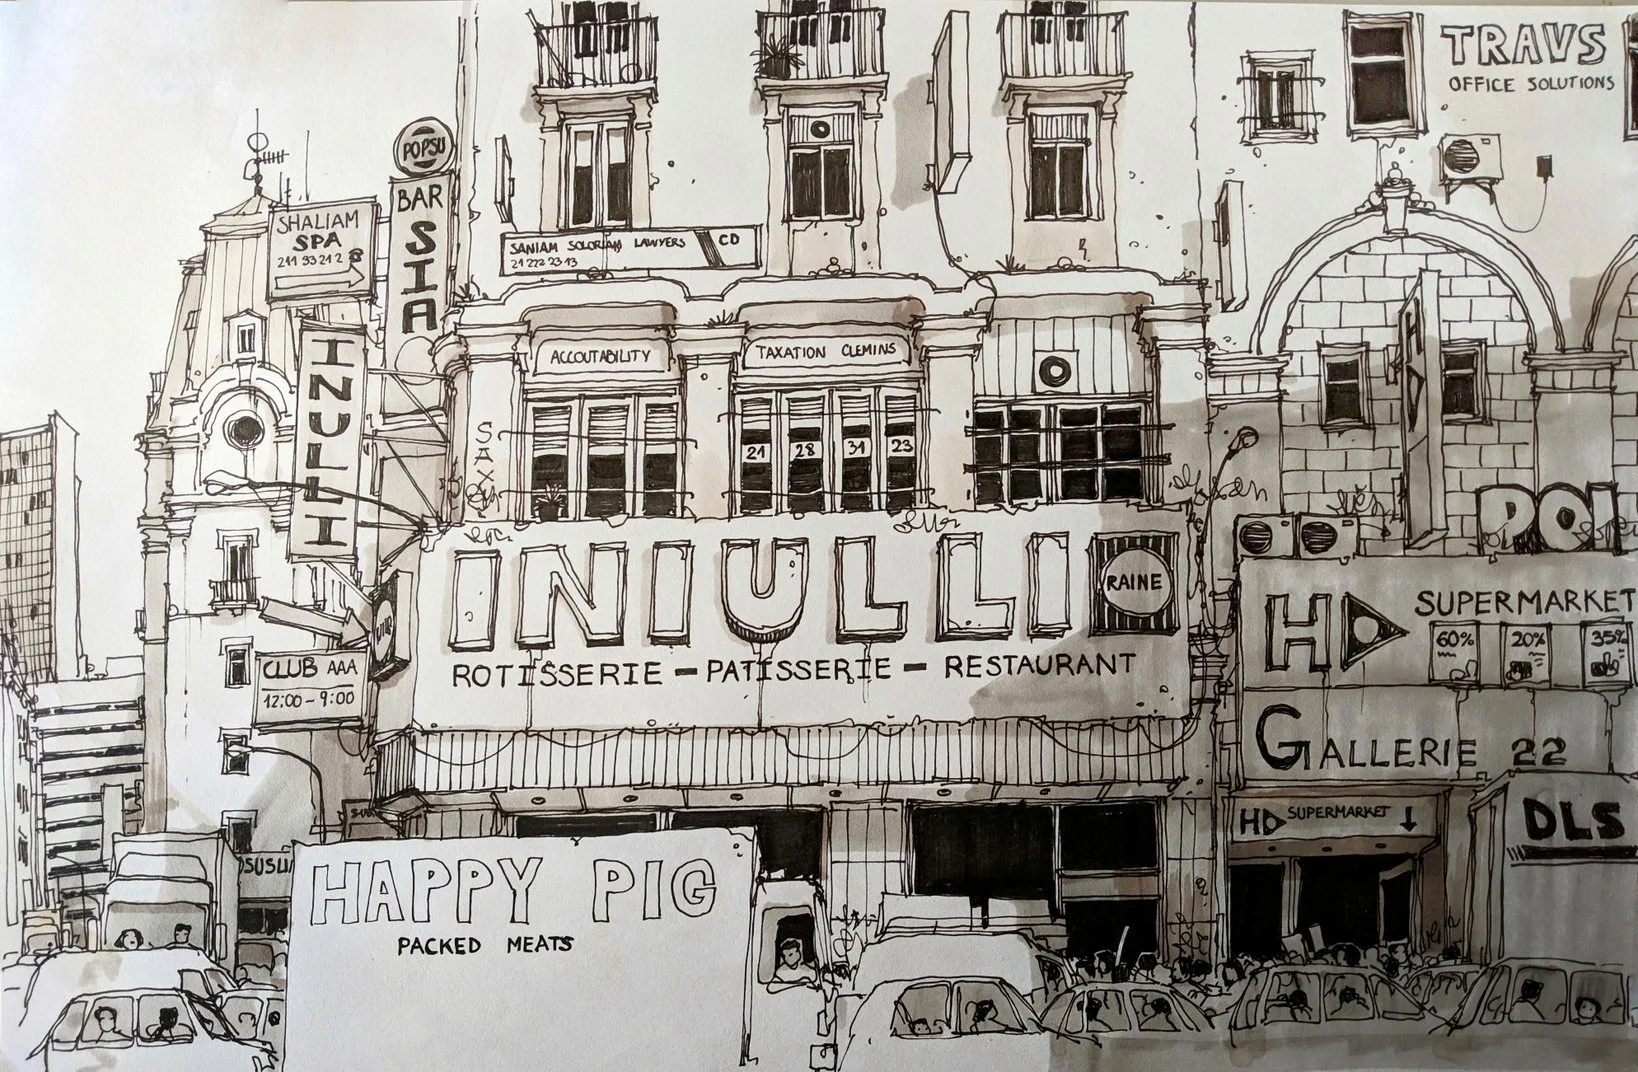 TRAVS
OFFICE SOLUTIONS
POPSU
BAR
SIA
SHALIAM
SPA
SANIAM SOLORIAM LAWYERS CD
21 222 23 13
INULLI
ACCOUTABILITY
TAXATION CLEMINS
21 28 31 23
SAX
INIULLI
RAINE
ROTISSERIE - PATISSERIE - RESTAURANT
CLUB AAA
12:00 - 9:00
POI
HD SUPERMARKET
60% 20% 35%
GALLERIE 22
HD SUPERMARKET
DLS
HAPPY PIG
PACKED MEATS